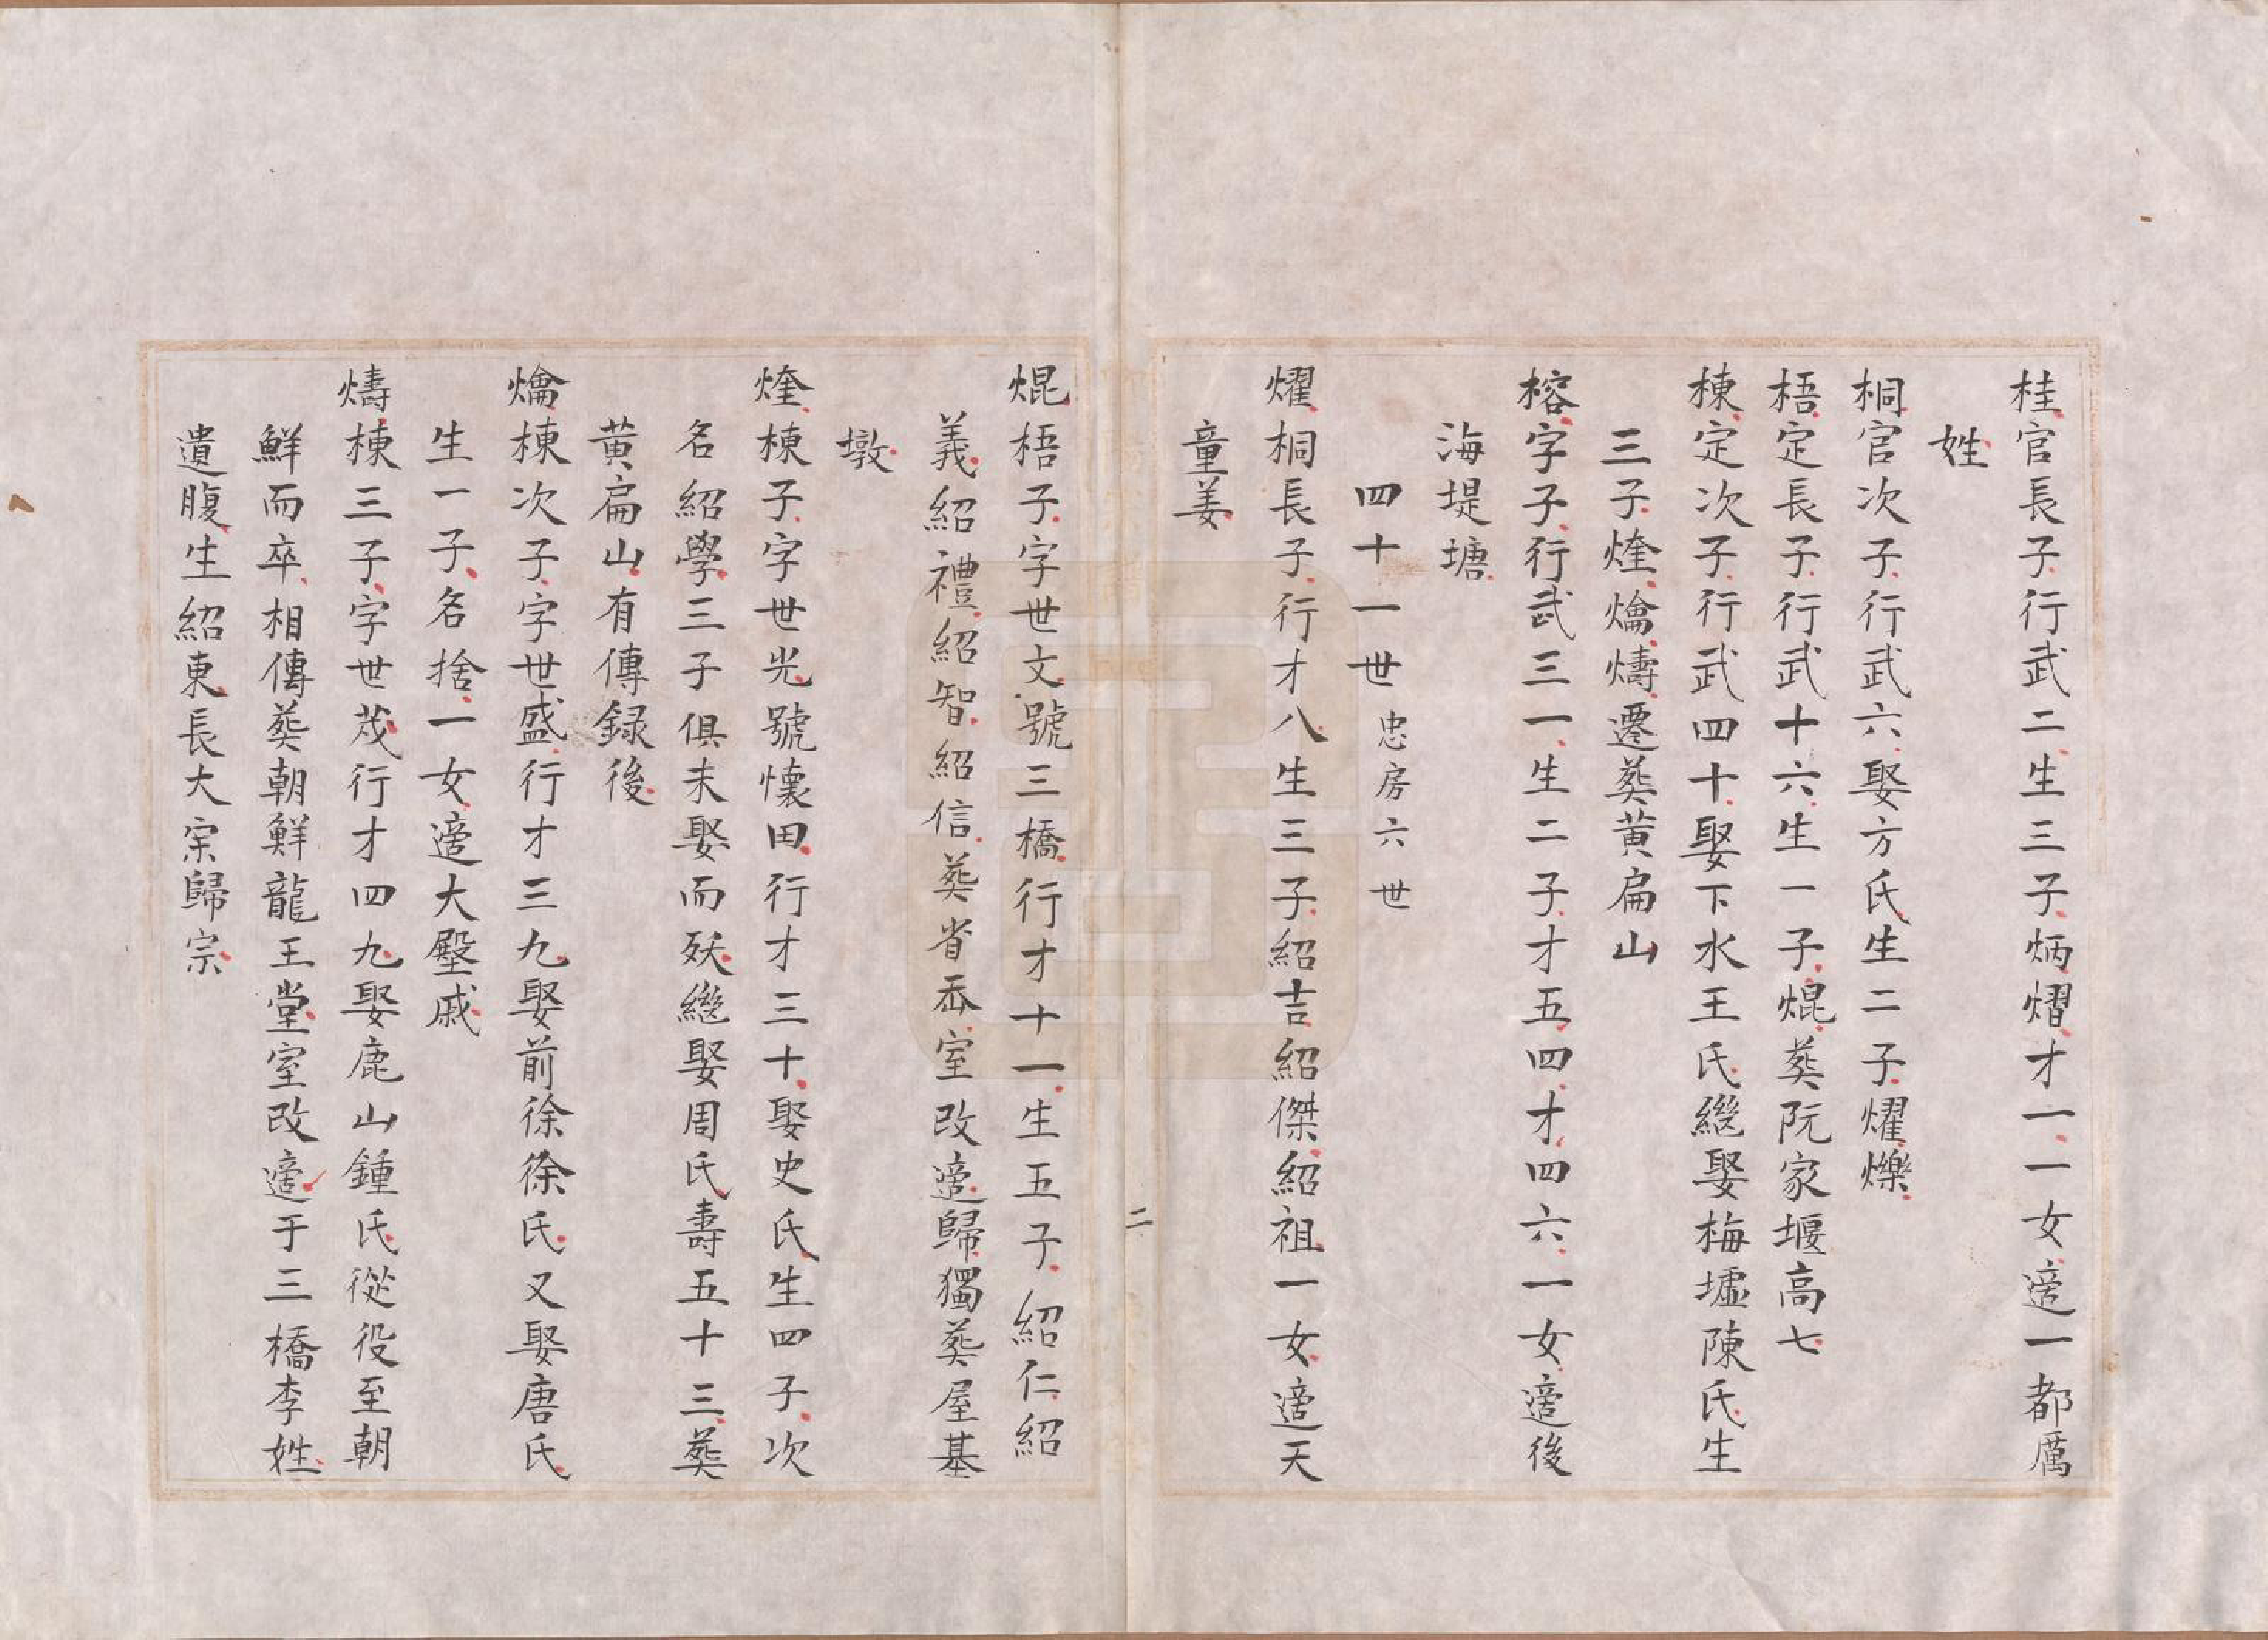 桂官長子行武二生三子炳熠才一一女適一都厲
姓
桐官次子行武六娶方氏生二子燿爍
梧定長子行武十六生一子焜葬阮家堰高七
棟定次子行武四十娶下水王氏繼娶梅墟陳氏生
三子煃爚燽遷葬黄扁山
榕字子行武三一生二子才五四才四六一女適後
海堤塘
四十一世忠房六世
燿桐長子行才八生三子紹吉紹傑紹祖一女適天
童姜
二
焜梧子字世文號三橋行才十一生五子紹仁紹
義紹禮紹智紹信葬省岙室改適歸獨葬屋基
墩
煃棟子字世光號懷田行才三十娶史氏生四子次
名紹學三子俱未娶而殀繼娶周氏壽五十三葬
黄扁山有傳録後
爚棟次子字世盛行才三九娶前徐徐氏又娶唐氏
生一子名捨一女適大壂戚
燽棟三子字世茂行才四九娶鹿山鍾氏從役至朝
鮮而卒相傳葬朝鮮龍王堂室改適于三橋李姓
遺腹生紹東長大宗歸宗